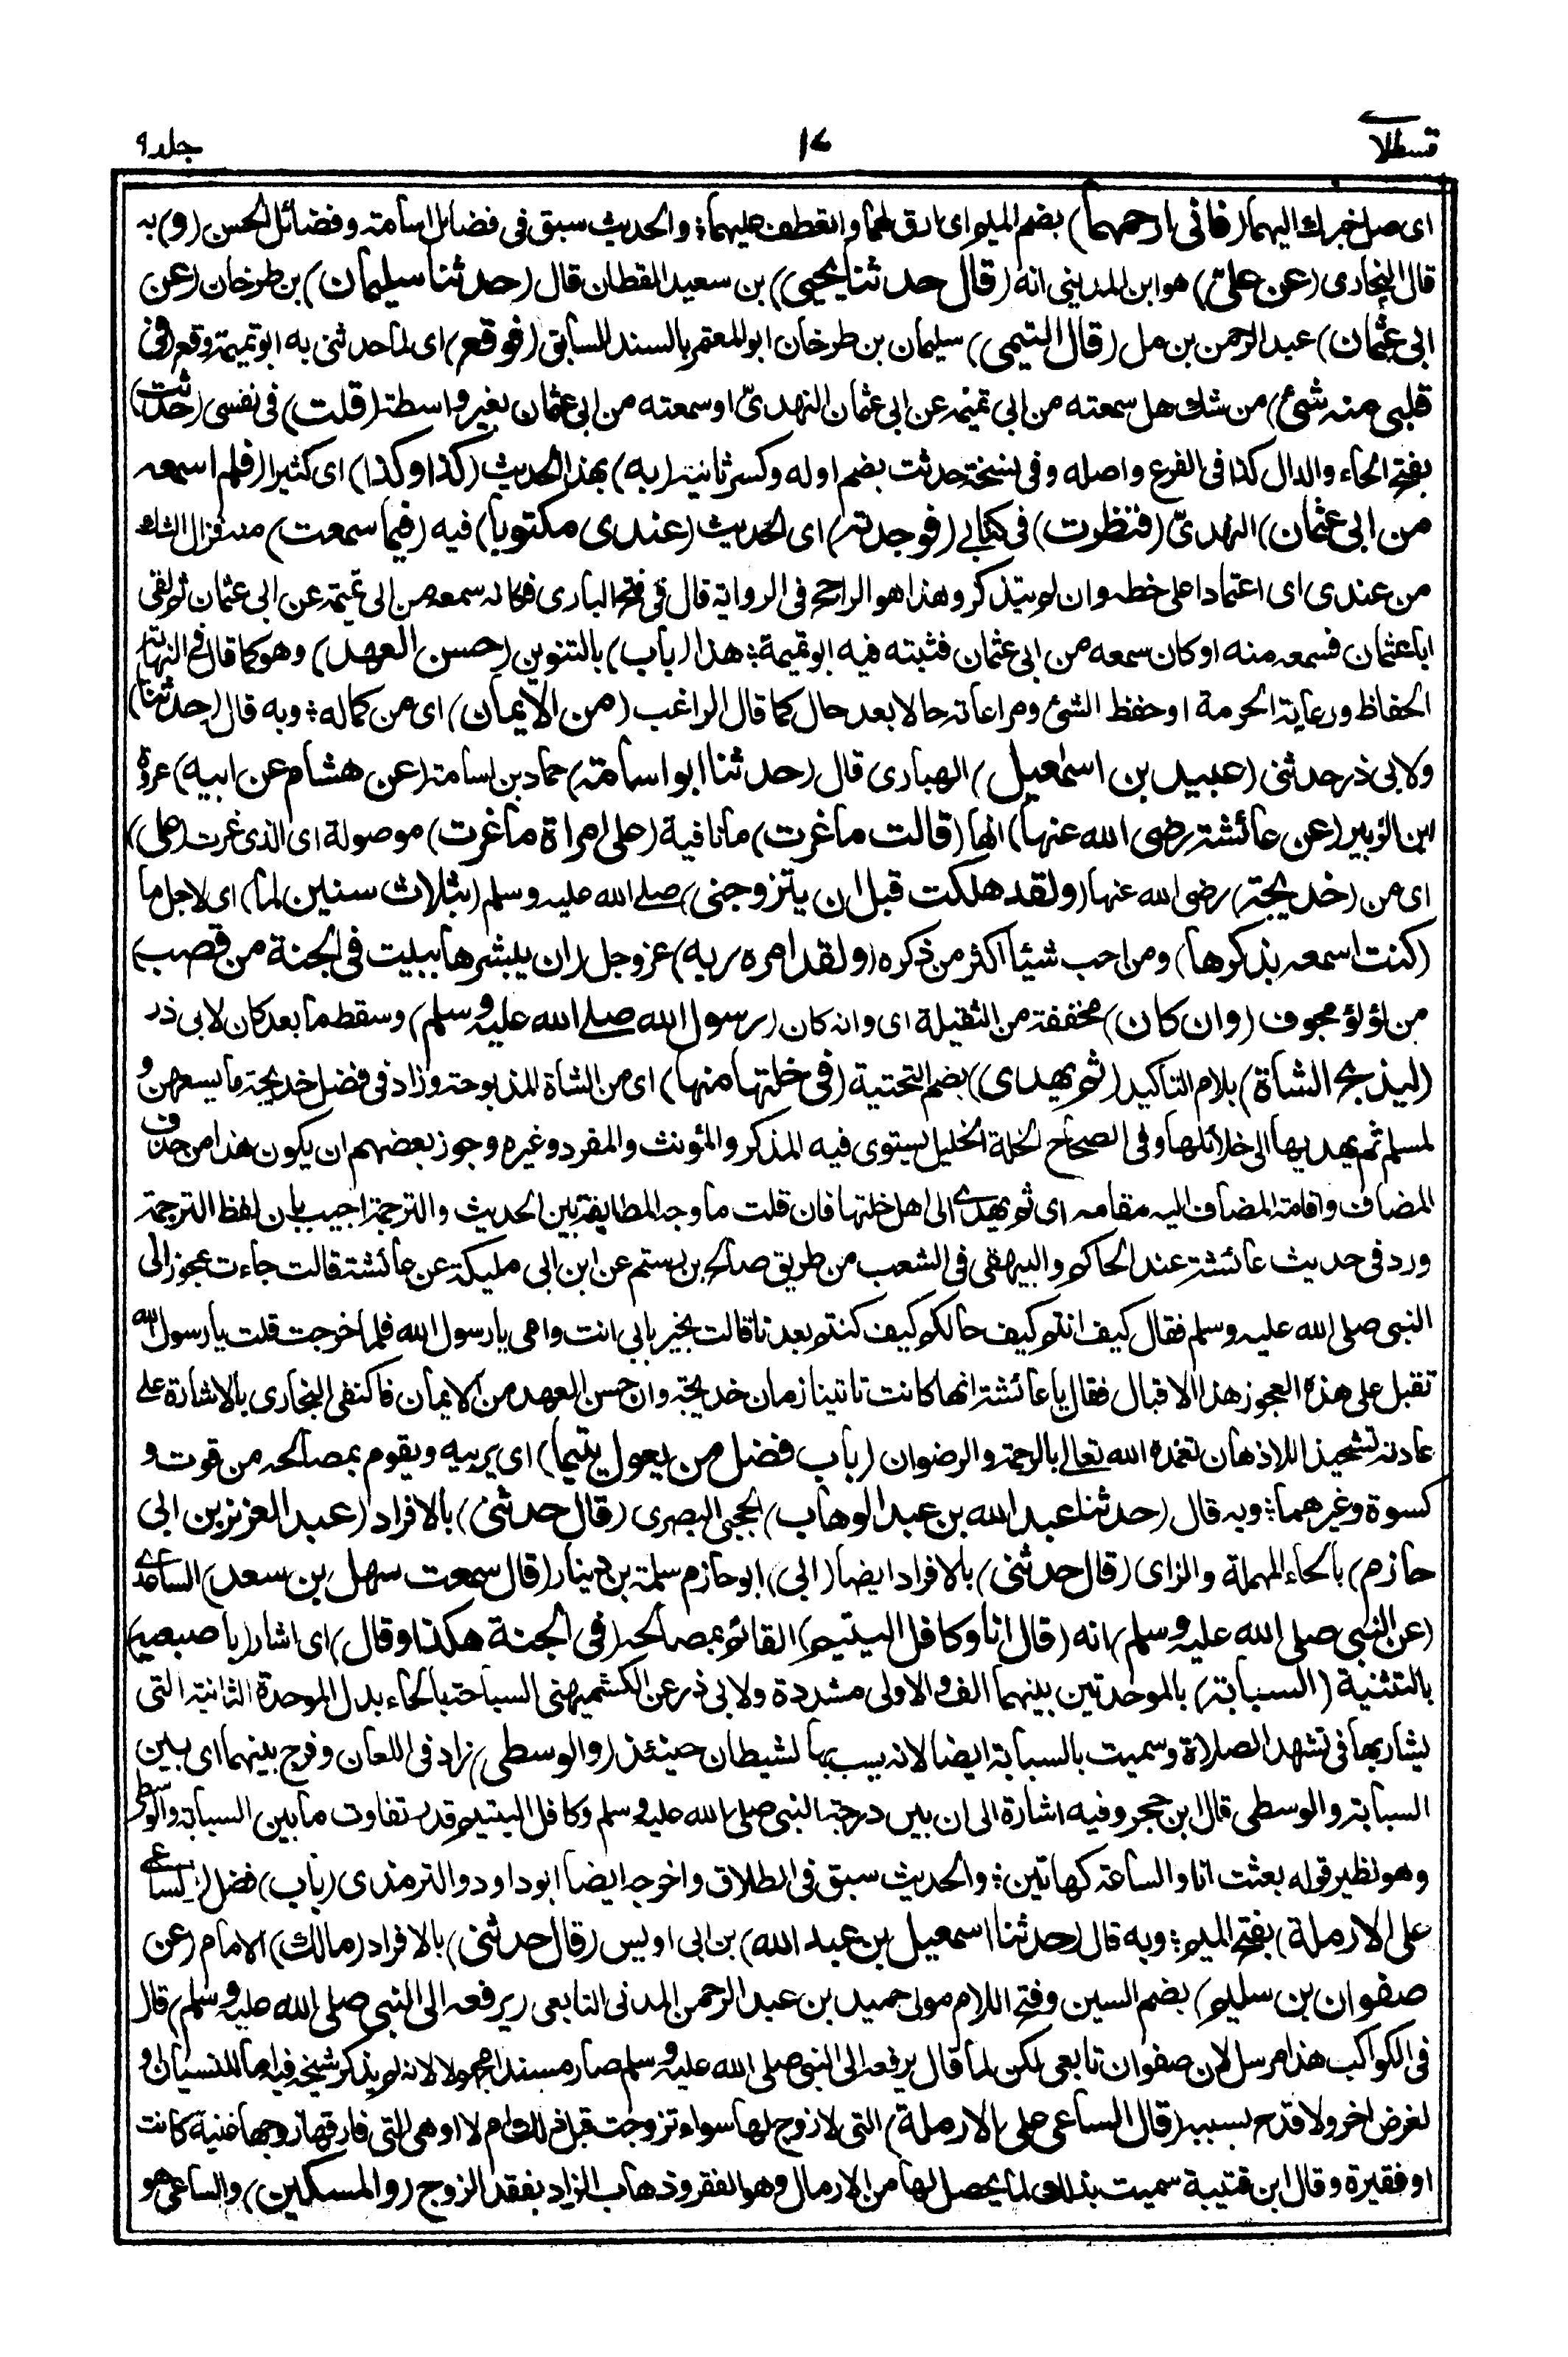 قسطلانی ١٧ جلد ٩
ای صل خيرك اليهما (فانی ارحمهما) بضم الميم ای ارق لهما واتعطف عليهما؛ والحديث سبق فی فضائل اسامة وفضائل الحسن (و) به
قال البخاری (عن علیّ) هو ابن المدينی انه (قال حدثنا يحيی) بن سعيد القطان قال (حدثنا سليمان) بن طرخان (عن
ابی عثمان) عبد الرحمن بن مل (قال التيمی) سليمان بن طرخان ابو المعتمر بالسند السابق (فوقع) ای لما حدثنی به ابو تميمة وقع (فی
قلبی منه شیء) من شك هل سمعته من ابی تميمة عن ابی عثمان النهدیّ او سمعته من ابی عثمان بغير واسطة (قلت) فی نفسی (حدثت)
بفتح الحاء والدال كذا فی الفرع واصله وفی نسخة حدثت بضم اوله وكسر ثانيه (به) بهذا الحديث (كذا وكذا) ای كثيرا (فلم اسمعه
من ابی عثمان) النهدیّ (فنظرت) فی كتابی (فوجدته) ای الحديث (عندی مكتوبا) فيه (فيما سمعت) منه فزال الشك
من عندی ای اعتمادا علی خطه وان لم يتذكر وهذا هو الراجح فی الرواية قال فی فتح الباری فكانه سمعه من ابی تميمة عن ابی عثمان ثم لقی
ابا عثمان فسمعه منه او كان سمعه من ابی عثمان فثبته فيه ابو تميمة؛ هذا (باب) بالتنوين (حسن العهد) وهو كما قال فی النهاية
الحفاظ ورعاية الحرمة او حفظ الشیء ومراعاته حالا بعد حال كما قال الراغب (من الايمان) ای من كماله؛ وبه قال (حدثنا)
ولابی ذر حدثنی (عبيد بن اسمٰعيل) الهباری قال (حدثنا ابو اسامة) حماد بن اسامة (عن هشام عن ابيه) عروة
ابن الزبير (عن عائشة رضی الله عنها) انها (قالت ما غرت) ما نافية (علی امراة ما غرت) موصولة ای الذی غرت (علی)
ای من (خديجة) رضی الله عنها (ولقد هلكت قبل ان يتزوجنی) صلی الله عليه وسلم (بثلاث سنين لما) ای لاجل ما
(كنت اسمعه يذكرها) ومن احب شيئا اكثر من ذكره (ولقد امره ربه) عز وجل (ان يبشرها ببيت فی الجنة من قصب)
من لؤلؤ مجوف (وان كان) مخففة من الثقيلة ای وانه كان (رسول الله صلی الله عليه وسلم) وسقط ما بعد كان لابی ذر
(ليذبح الشاة) بلام التاكيد (ثم يهدی) بضم التحتية (فی خلتها منها) ای من الشاة المذبوحة وزاد فی فضل خديجة ما يسعهن و
لمسلم ثم يهديها الی خلائلها وفی الصحاح الخلة الخليل يستوی فيه المذكر والمؤنث والمفرد وغيره وجوز بعضهم ان يكون هذا من حذف
المضاف واقامة المضاف اليه مقامه ای ثم يهدی الی اهل خلتها فان قلت ما وجه المطابقة بين الحديث والترجمة اجيب بان لفظ الترجمة
ورد فی حديث عائشة عند الحاكم والبيهقی فی الشعب من طريق صالح بن رستم عن ابن ابی مليكة عن عائشة قالت جاءت عجوز الی
النبی صلی الله عليه وسلم فقال كيف انتم كيف حالكم كيف كنتم بعدنا قالت بخير بابی انت وامی يا رسول الله فلما خرجت قلت يا رسول الله
تقبل علی هذه العجوز هذا الاقبال فقال يا عائشة انها كانت تاتينا زمان خديجة وان حسن العهد من الايمان فاكتفی البخاری بالاشارة علی
عادته تشحيذا للاذهان تغمده الله تعالی بالرحمة والرضوان (باب فضل من يعول يتيما) ای يربيه ويقوم بمصالحه من قوت و
كسوة وغيرهما؛ وبه قال (حدثنا عبد الله بن عبد الوهاب) الحجبی البصری (قال حدثنی) بالافراد (عبد العزيز بن ابی
حازم) بالحاء المهملة والزای (قال حدثنی) بالافراد ايضا (ابی) ابو حازم سلمة بن دينار (قال سمعت سهل بن سعد) الساعدی
(عن النبی صلی الله عليه وسلم) انه (قال انا وكافل اليتيم) القائم بمصالحه (فی الجنة هكذا وقال) ای اشار (باصبعيه)
بالتثنية (السبابة) بالموحدتين بينهما الف والاولی مشددة ولابی ذر عن الكشميهنی السباحة بالحاء بدل الموحدة الثانية التی
يشار بها فی تشهد الصلاة وسميت بالسبابة ايضا لانه يسب بها الشيطان حينئذ (والوسطی) زاد فی اللعان وفرج بينهما ای بين
السبابة والوسطی قال ابن حجر وفيه اشارة الی ان بين درجة النبی صلی الله عليه وسلم وكافل اليتيم قدر تفاوت ما بين السبابة والوسطی
وهو نظير قوله بعثت انا والساعة كهاتين؛ والحديث سبق فی الطلاق واخرجه ايضا ابو داود والترمذی (باب) فضل (الساعی
علی الارملة) بفتح الميم؛ وبه قال (حدثنا اسمعيل بن عبد الله) بن ابی اويس (قال حدثنی) بالافراد (مالك) الامام (عن
صفوان بن سليم) بضم السين وفتح اللام مولی حميد بن عبد الرحمن المدنی التابعی (يرفعه الی النبی صلی الله عليه وسلم) قال
فی الكواكب هذا مرسل لان صفوان تابعی لكن لما قال يرفعه الی النبی صلی الله عليه وسلم صار مسندا مجهولا لانه لم يذكر شيخه فيه اما للنسيان او
لغرض اخر ولا قدح بسببه (قال الساعی علی الارملة) التی لا زوج لها سواء تزوجت قبل ذلك ام لا او هی التی فارقها زوجها غنية كانت
او فقيرة وقال ابن قتيبة سميت بذلك لما يحصل لها من الارمال وهو الفقر وذهاب الزاد بفقد الزوج (والمسكين) والساعی هو